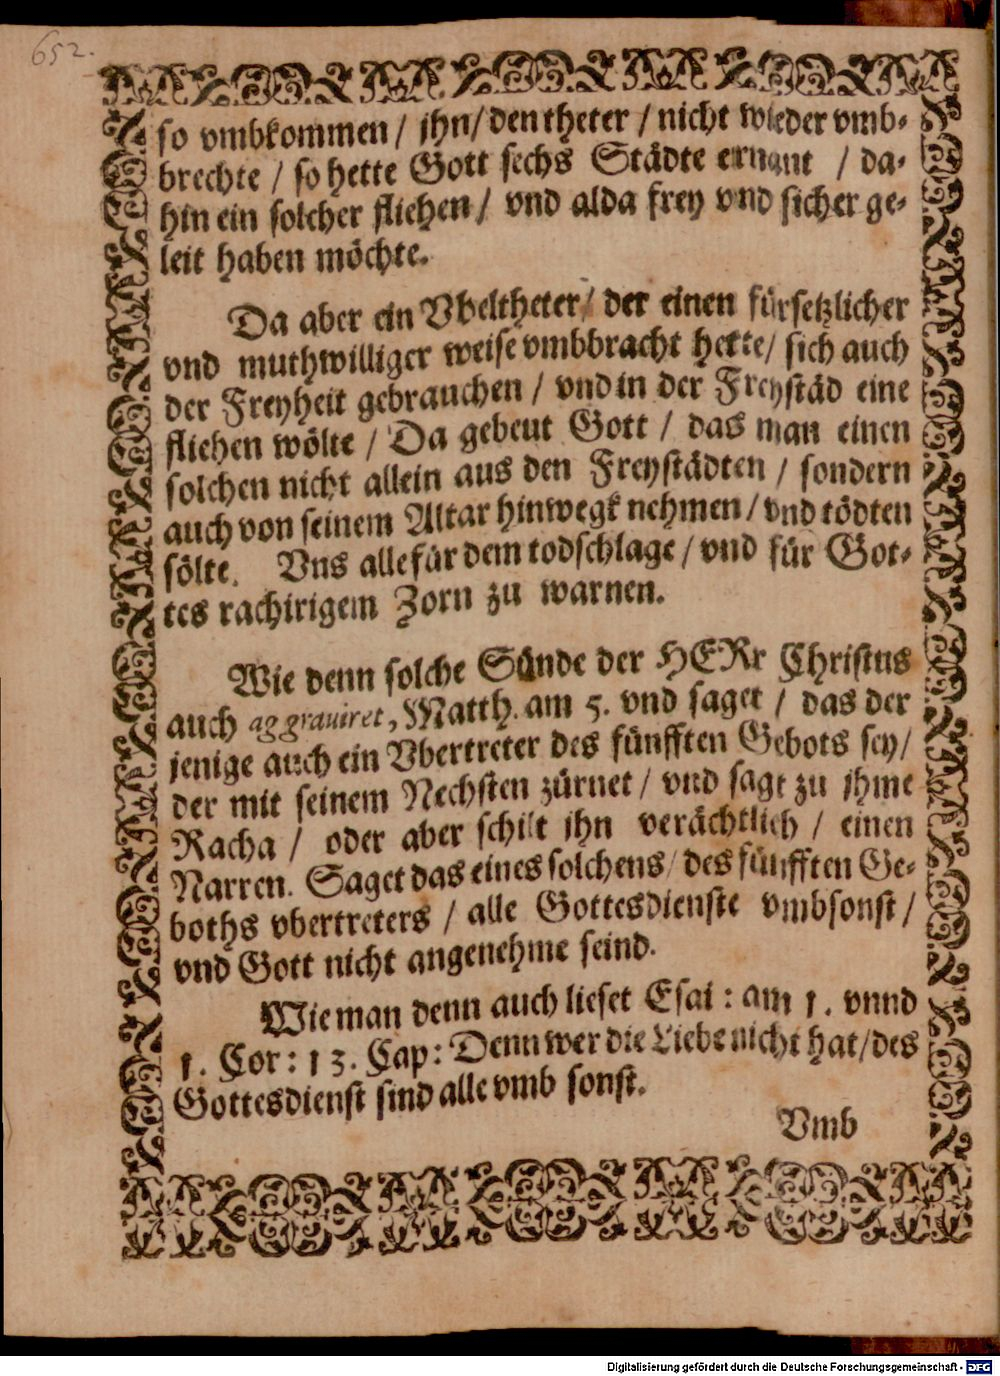 652.
so vmbkommen / jhn / den theter / nicht wieder vmb-
brechte / so hette Gott sechs Städte ernant / da-
hin ein solcher fliehen / vnd alda frey vnd sicher ge-
leit haben möchte.
Da aber ein Vbeltheter / der einen fürsetzlicher
vnd muthwilliger weise vmbbracht hette / sich auch
der Freyheit gebrauchen / vnd in der Freystäd eine
fliehen wölte / Da gebeut Gott / das man einen
solchen nicht allein aus den Freystädten / sondern
auch von seinem Altar hinwegk nehmen / vnd tödten
sölte. Vns alle für dem todschlage / vnd für Got-
tes rachirigem Zorn zu warnen.
Wie denn solche Sünde der HERr Christus
auch aggrauiret, Matth. am 5. vnd saget / das der
jenige auch ein Vbertreter des fünfften Gebots sey /
der mit seinem Nechsten zürnet / vnd sagt zu jhme
Racha / oder aber schilt jhn verächtlich / einen
Narren. Saget das eines solchens / des fünfften Ge-
boths vbertreters / alle Gottesdienste vmbsonst /
vnd Gott nicht angenehme seind.
Wie man denn auch lieset Esai : am 1. vnnd
1. Cor : 13. Cap : Denn wer die Liebe nicht hat / des
Gottesdienst sind alle vmb sonst.
Vmb
Digitalisierung gefördert durch die Deutsche Forschungsgemeinschaft - DFG